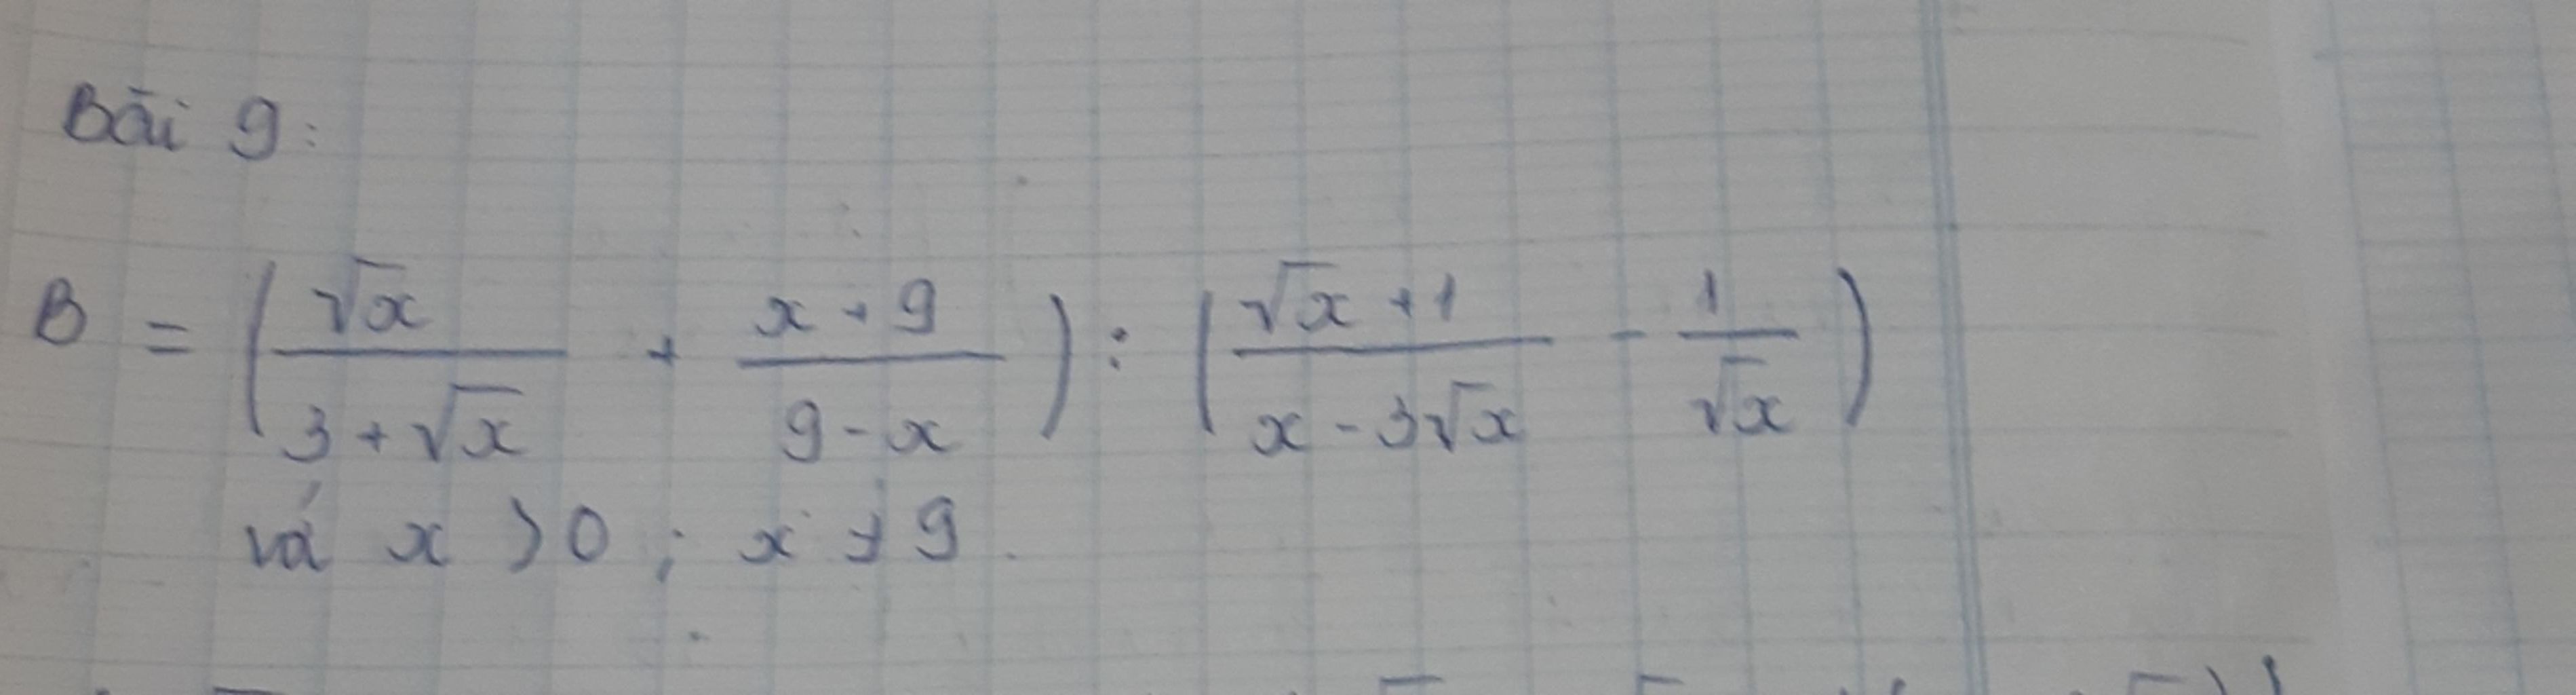 Bài 9:
B = (√x / (3 + √x) + (x + 9) / (9 - x)) : ((√x + 1) / (x - 3√x) - 1 / √x)
vá x > 0 ; x ≠ 9.